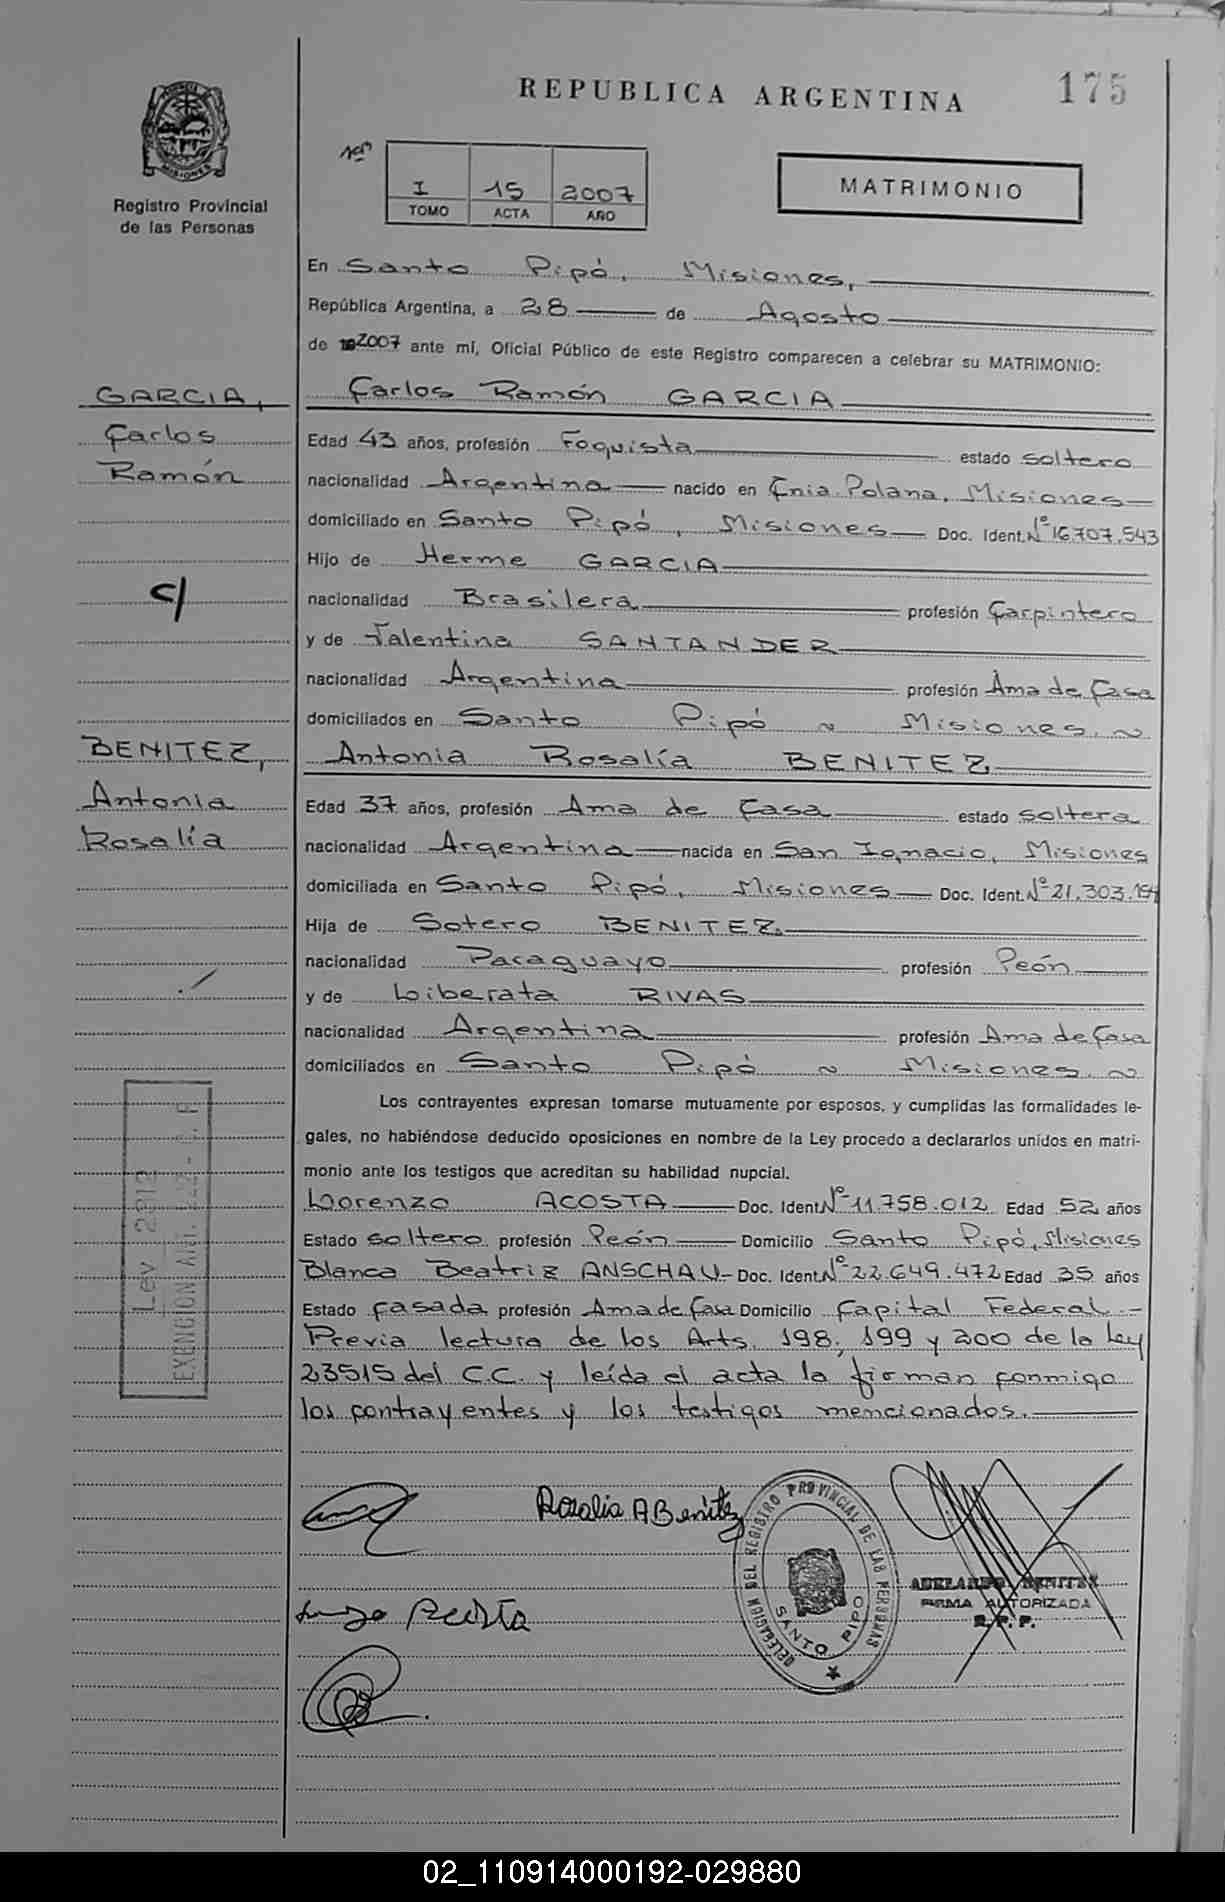 REPUBLICA ARGENTINA
175
MISIONES
Registro Provincial
de las Personas
1er
I 15 2007
TOMO ACTA AÑO
MATRIMONIO
En Santo Pipó, Misiones,
República Argentina, a 28 de Agosto
de 2007 ante mí, Oficial Público de este Registro comparecen a celebrar su MATRIMONIO:
GARCIA,
Carlos
Ramón
c/
BENITEZ,
Antonia
Rosalía
Carlos Ramón GARCIA
Edad 43 años, profesión Foquista estado soltero
nacionalidad Argentina nacido en Cnia. Polana, Misiones
domiciliado en Santo Pipó, Misiones Doc. Ident. Nº 16.707.543
Hijo de Herme GARCIA
nacionalidad Brasilera profesión Carpintero
y de Valentina SANTANDER
nacionalidad Argentina profesión Ama de Casa
domiciliados en Santo Pipó ~ Misiones. ~
Antonia Rosalía BENITEZ
Edad 37 años, profesión Ama de Casa estado soltera
nacionalidad Argentina nacida en San Ignacio, Misiones
domiciliada en Santo Pipó, Misiones Doc. Ident. Nº 21.303.
Hija de Sotero BENITEZ
nacionalidad Paraguayo profesión Peón
y de Liberata RIVAS
nacionalidad Argentina profesión Ama de Casa
domiciliados en Santo Pipó ~ Misiones. ~
Los contrayentes expresan tomarse mutuamente por esposos, y cumplidas las formalidades le-
gales, no habiéndose deducido oposiciones en nombre de la Ley procedo a declararlos unidos en matri-
monio ante los testigos que acreditan su habilidad nupcial.
Lorenzo ACOSTA Doc. Ident. Nº 11.758.012 Edad 52 años
Estado soltero profesión Peón Domicilio Santo Pipó, Misiones
Blanca Beatriz ANSCHAU - Doc. Ident. Nº 22.649.472 Edad 35 años
Estado casada profesión Ama de Casa Domicilio Capital Federal.-
Previa lectura de los Arts. 198, 199 y 200 de la Ley
23515 del C.C. y leída el acta la firman conmigo
los contrayentes y los testigos mencionados.
Ley 2912
EXENCION ART.
Rosalia A Benitez
DELEGACION DEL REGISTRO PROVINCIAL DE LAS PERSONAS
SANTO PIPO
ADELARDO BENITEZ
FIRMA AUTORIZADA
R. P. P.
Acosta
02_110914000192-029880